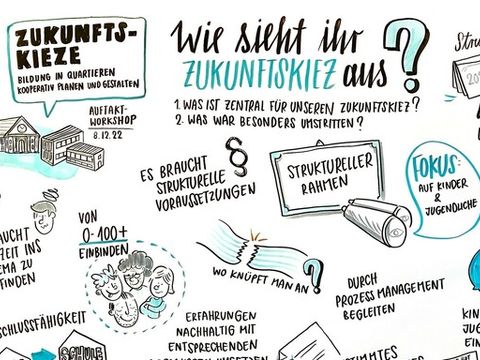 ZUKUNFTS-
KIEZE
BILDUNG IN QUARTIEREN
KOOPERATIV PLANEN UND GESTALTEN
AUFTAKT-
WORKSHOP
8.12.22
Wie sieht ihr
ZUKUNFTSKIEZ aus ?
1. WAS IST ZENTRAL FÜR UNSEREN ZUKUNFTSKIEZ?
2. WAS WAR BESONDERS UMSTRITTEN?
Stru
20
ES BRAUCHT
STRUKTURELLE
VORAUSSETZUNGEN
§
STRUKTURELLER
RAHMEN
FOKUS:
AUF KINDER
&
JUGENDLICHE
AUCHT
ZEIT INS
EMA ZU
FINDEN
VON
0-100+
EINBINDEN
WO KNÜPFT MAN AN ?
DURCH
PROZESS MANAGEMENT
BEGLEITEN
SCHLUSSFÄHIGKEIT
SCHULE
ERFAHRUNGEN
NACHHALTIG MIT
ENTSPRECHENDEN
KIN
JUG
EIN